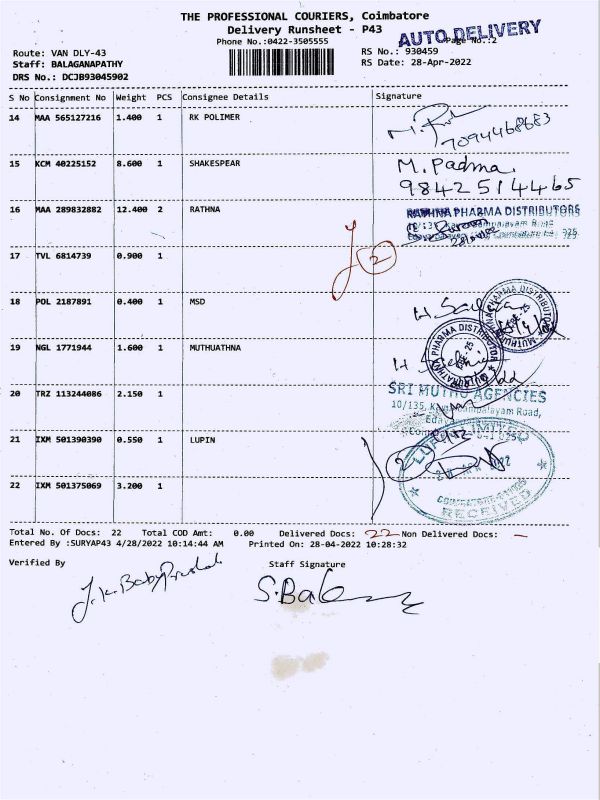 THE PROFESSIONAL COURIERS, Coimbatore
Delivery Runsheet - P43
AUTO DELIVERY
Page No.:2
Phone No.:0422-3505555
Route: VAN DLY-43
RS No.: 930459
Staff: BALAGANAPATHY
RS Date: 28-Apr-2022
DRS No.: DCJB93045902
S No Consignment No Weight PCS Consignee Details Signature
14 MAA 565127216 1.400 1 RK POLIMER
7094468683
15 KCM 40225152 8.600 1 SHAKESPEAR M. Padma.
9842514465
16 MAA 289832882 12.400 2 RATHNA RATHNA PHARMA DISTRIBUTORS
17 TVL 6814739 0.900 1
2
18 POL 2187891 0.400 1 MSD
19 NGL 1771944 1.600 1 MUTHUATHNA
20 TRZ 113244086 2.150 1
SRI MUTHU AGENCIES
21 IXM 501390390 0.550 1 LUPIN
22 IXM 501375069 3.200 1
RECEIVED
Total No. Of Docs: 22 Total COD Amt: 0.00 Delivered Docs: 22 Non Delivered Docs: -
Entered By :SURYAP43 4/28/2022 10:14:44 AM Printed On: 28-04-2022 10:28:32
Verified By Staff Signature